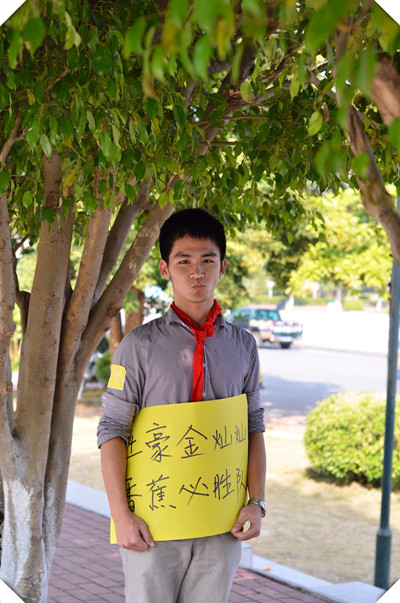 土豪金灿灿
香蕉必胜队